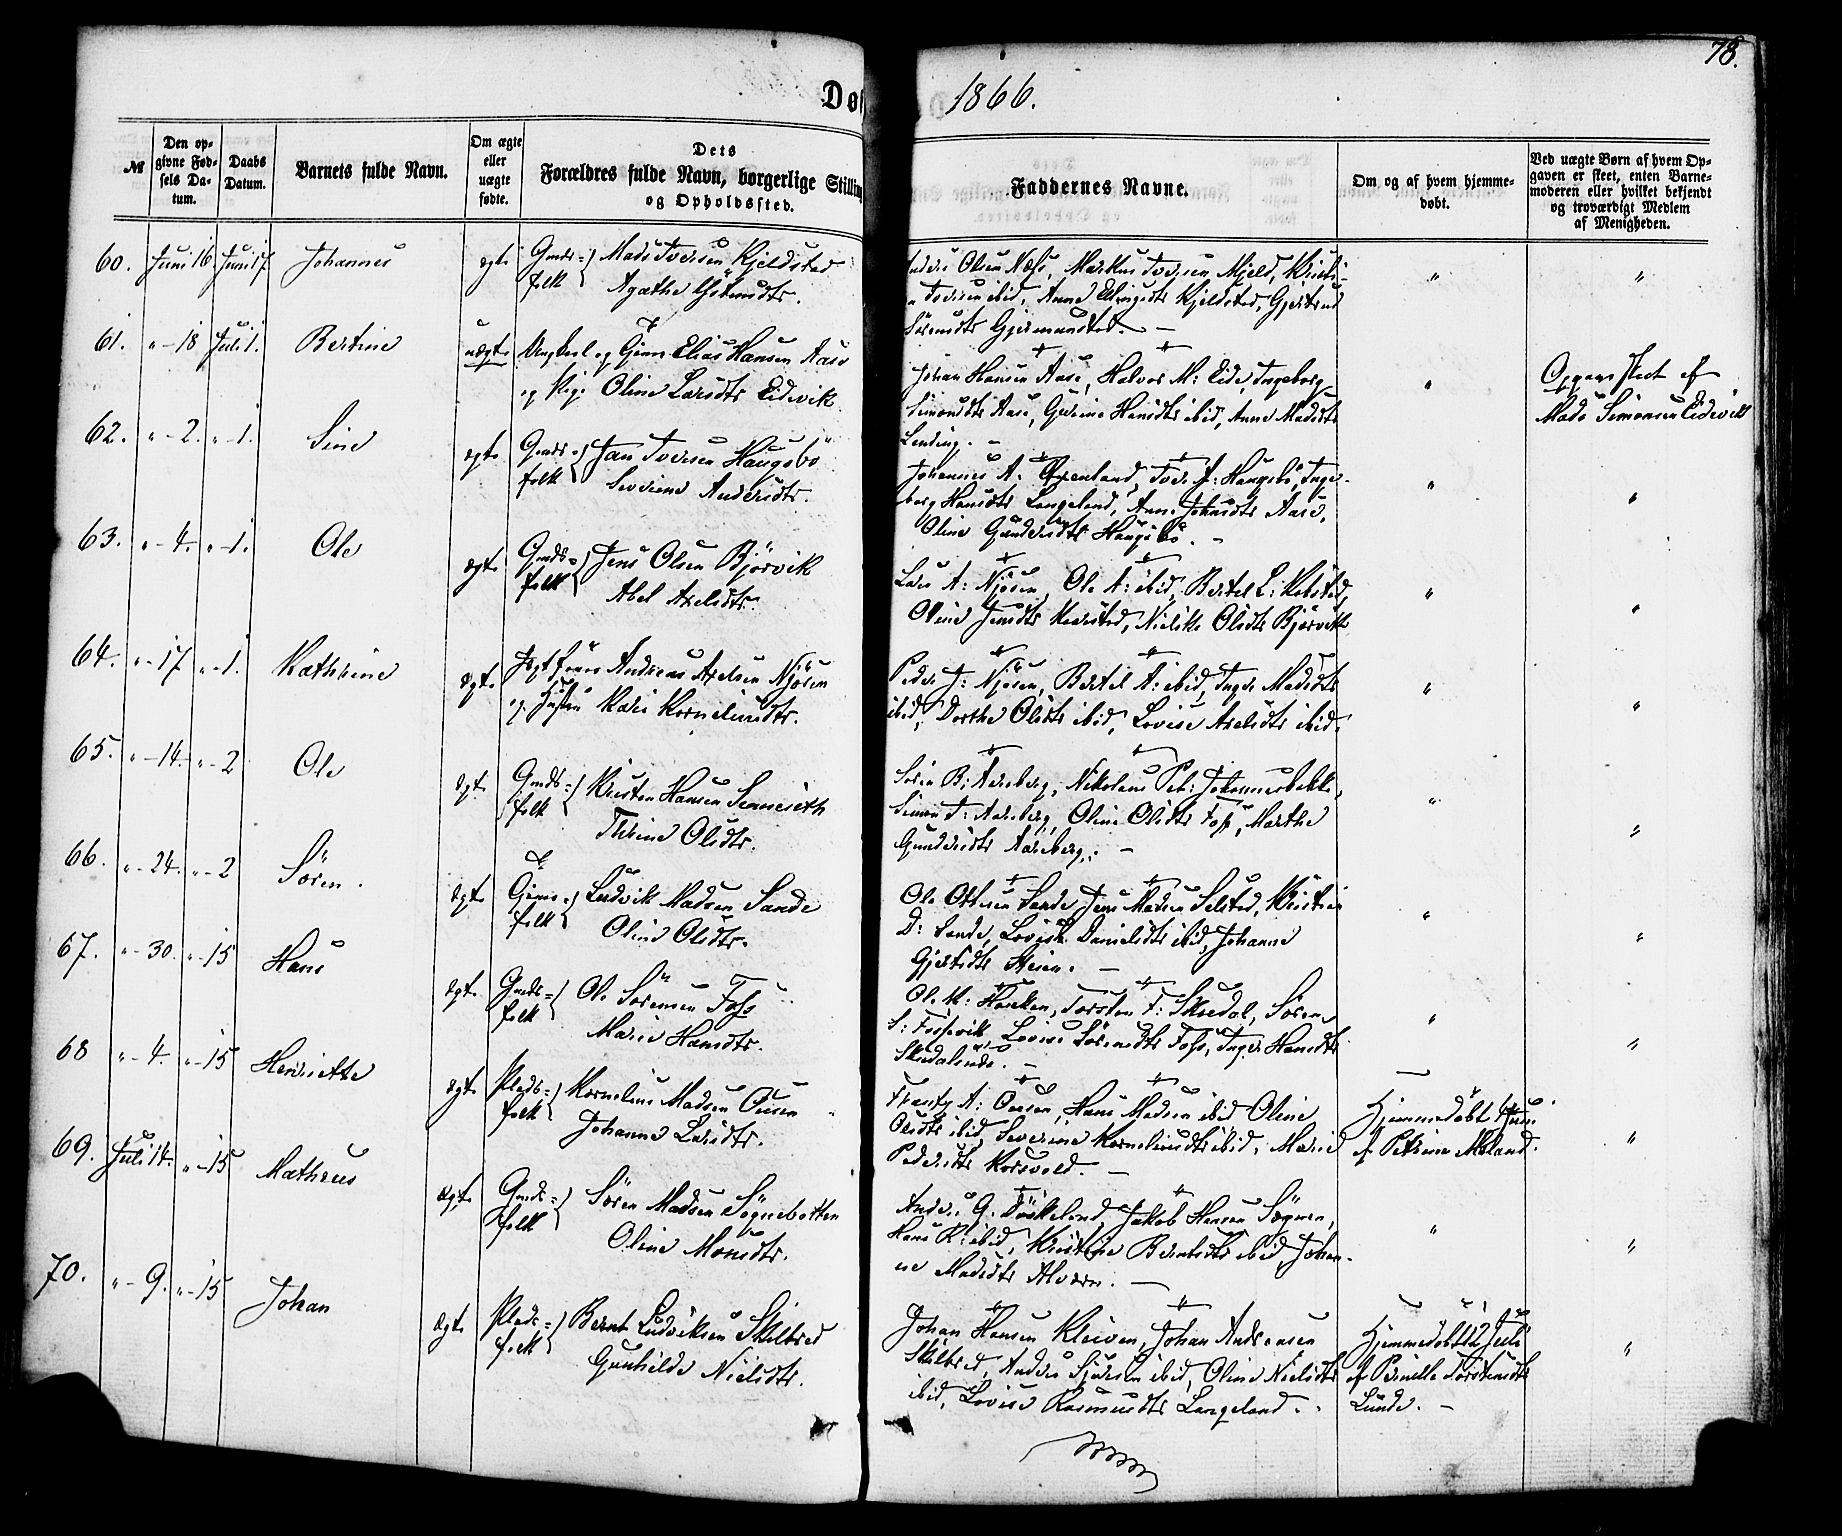 78.
Døb
1866.
№
Den op-
givne Fød-
sels Da-
tum.
Daabs
Datum.
Barnets fulde Navn.
Om ægte
eller
uægte
fødte.
Dets
Forældres fulde Navn, borgerlige Stilling
og Opholdssted.
Faddernes Navne.
Om og af hvem hjemme-
døbt.
Ved uægte Børn af hvem Op-
gaven er skeet, enten Barne-
moderen eller hvilket bekjendt
og troværdigt Medlem
af Menigheden.
60. Juni 16 Juni 17. Johannes ægte Gmds= Mads Iversen Kjeldstad
folk Agathe
Anders Olsen Næss, Markus Iversen Mjeld, Kristi-
Iversen ibid, Anne Kjeldstad, Gjertrud
Sörensdtr Gjermundstad. —
" "
61. " - 18 Juli 1. Bertine uægte Ungkarl og Gjm Elias Hansen Aase
og Pige Oline Larsdtr Eidevik
Johan Hansen Aase, Halvor M: Eide, Ingeborg
Simonsdtr Aase, Hansdtr ibid, Anne Madsdtr
"
Opgav skeet af
Mads Simonsen Eidevik
62. " - 2. " - 1. Sine ægte Gmds= Jan Iversen Haugsbö
folk Severine Andersdtr.
Johannes A: Iver J: Haugsbö, Inge-
borg Hansdtr Langeland, Anne Johansdtr Aase,
Oline Gundersdtr Haugsbö. —
" "
63. " - 4. " - 1. Ole ægte Gmds= Jens Olsen Björvik
folk Abel Axelsdtr.
Lars A: Njösen, Ole A: ibid, Bertel L:
Oline Jensdtr Olsdtr Björvik
" "
64. " - 17 " - 1. Kathrine ægte Andreas Axelsen Njösen
og Hustru Kari Korneliusdtr.
Peder J: Njösen, Bertel A: ibid, Inger Madsdtr
ibid, Dorthe Olsdtr ibid, Lovise Axelsdtr ibid.
" "
65. " - 14. " - 2 Ole ægte Gmds= Kristen Hansen
folk Thrine Olsdtr.
Sören B: Aarberg, Nikolaus Pet: Johannesbakke,
Simon Aarberg, Oline Olsdtr Foss, Marthe
Gundersdtr Aarberg. —
" "
66. " - 24. " - 2 Sören. ægte Gjms= Ludvik Madsen Sande
folk Oline Olsdtr.
Ole Ottesen Sande, Jens Madsen Selstad, Kristian
D: Sande, Lovise Danielsdtr ibid, Johanne
Gjertsdtr Steien. —
" "
67. " - 30. " - 15 Hans ægte Gmds= Ole Sörensen Foss
folk Marie Hansdtr.
Ole M: Torsten T: Skredal, Sören
S: Fossevik, Lovise Sörensdtr Foss, Inger Hansdtr
" "
68 " - 4. " - 15 Henriette ægte Plads= Kornelius Madsen Ousen
folk Johanne Larsdtr.
Frantz A: Ousen, Hans Madsen ibid Oline
Olsdtr ibid Severine Korneliusdtr ibid, Marie
Pedersdtr Korsvold. —
Hjemmedöbt Juni
af Petrine Moland.
"
69. Juli 14. " - 15 Matheus ægte Gmds= Sören Madsen Sögnebotten
folk Oline Monsdtr.
Anders G. Döskeland, Jakob Hansen Sögnen,
Hans R: ibid, Kristine Berntsdtr ibid, Johan-
ne Madsdtr Alværn. —
" "
70. " - 9. " - 15 Johan ægte Plads= Bernt Ludviksen Skilbred
folk Gunhilde Nielsdtr.
Johan Hansen Kleiven, Johan Andreasen
Skilbred, Anders Sjursen ibid, Oline Nielsdtr
ibid, Lovise Rasmusdtr Langeland. .
Hjemmedöbt 12 Juli
af Pernille Torstensdtr
Lunde. —
"